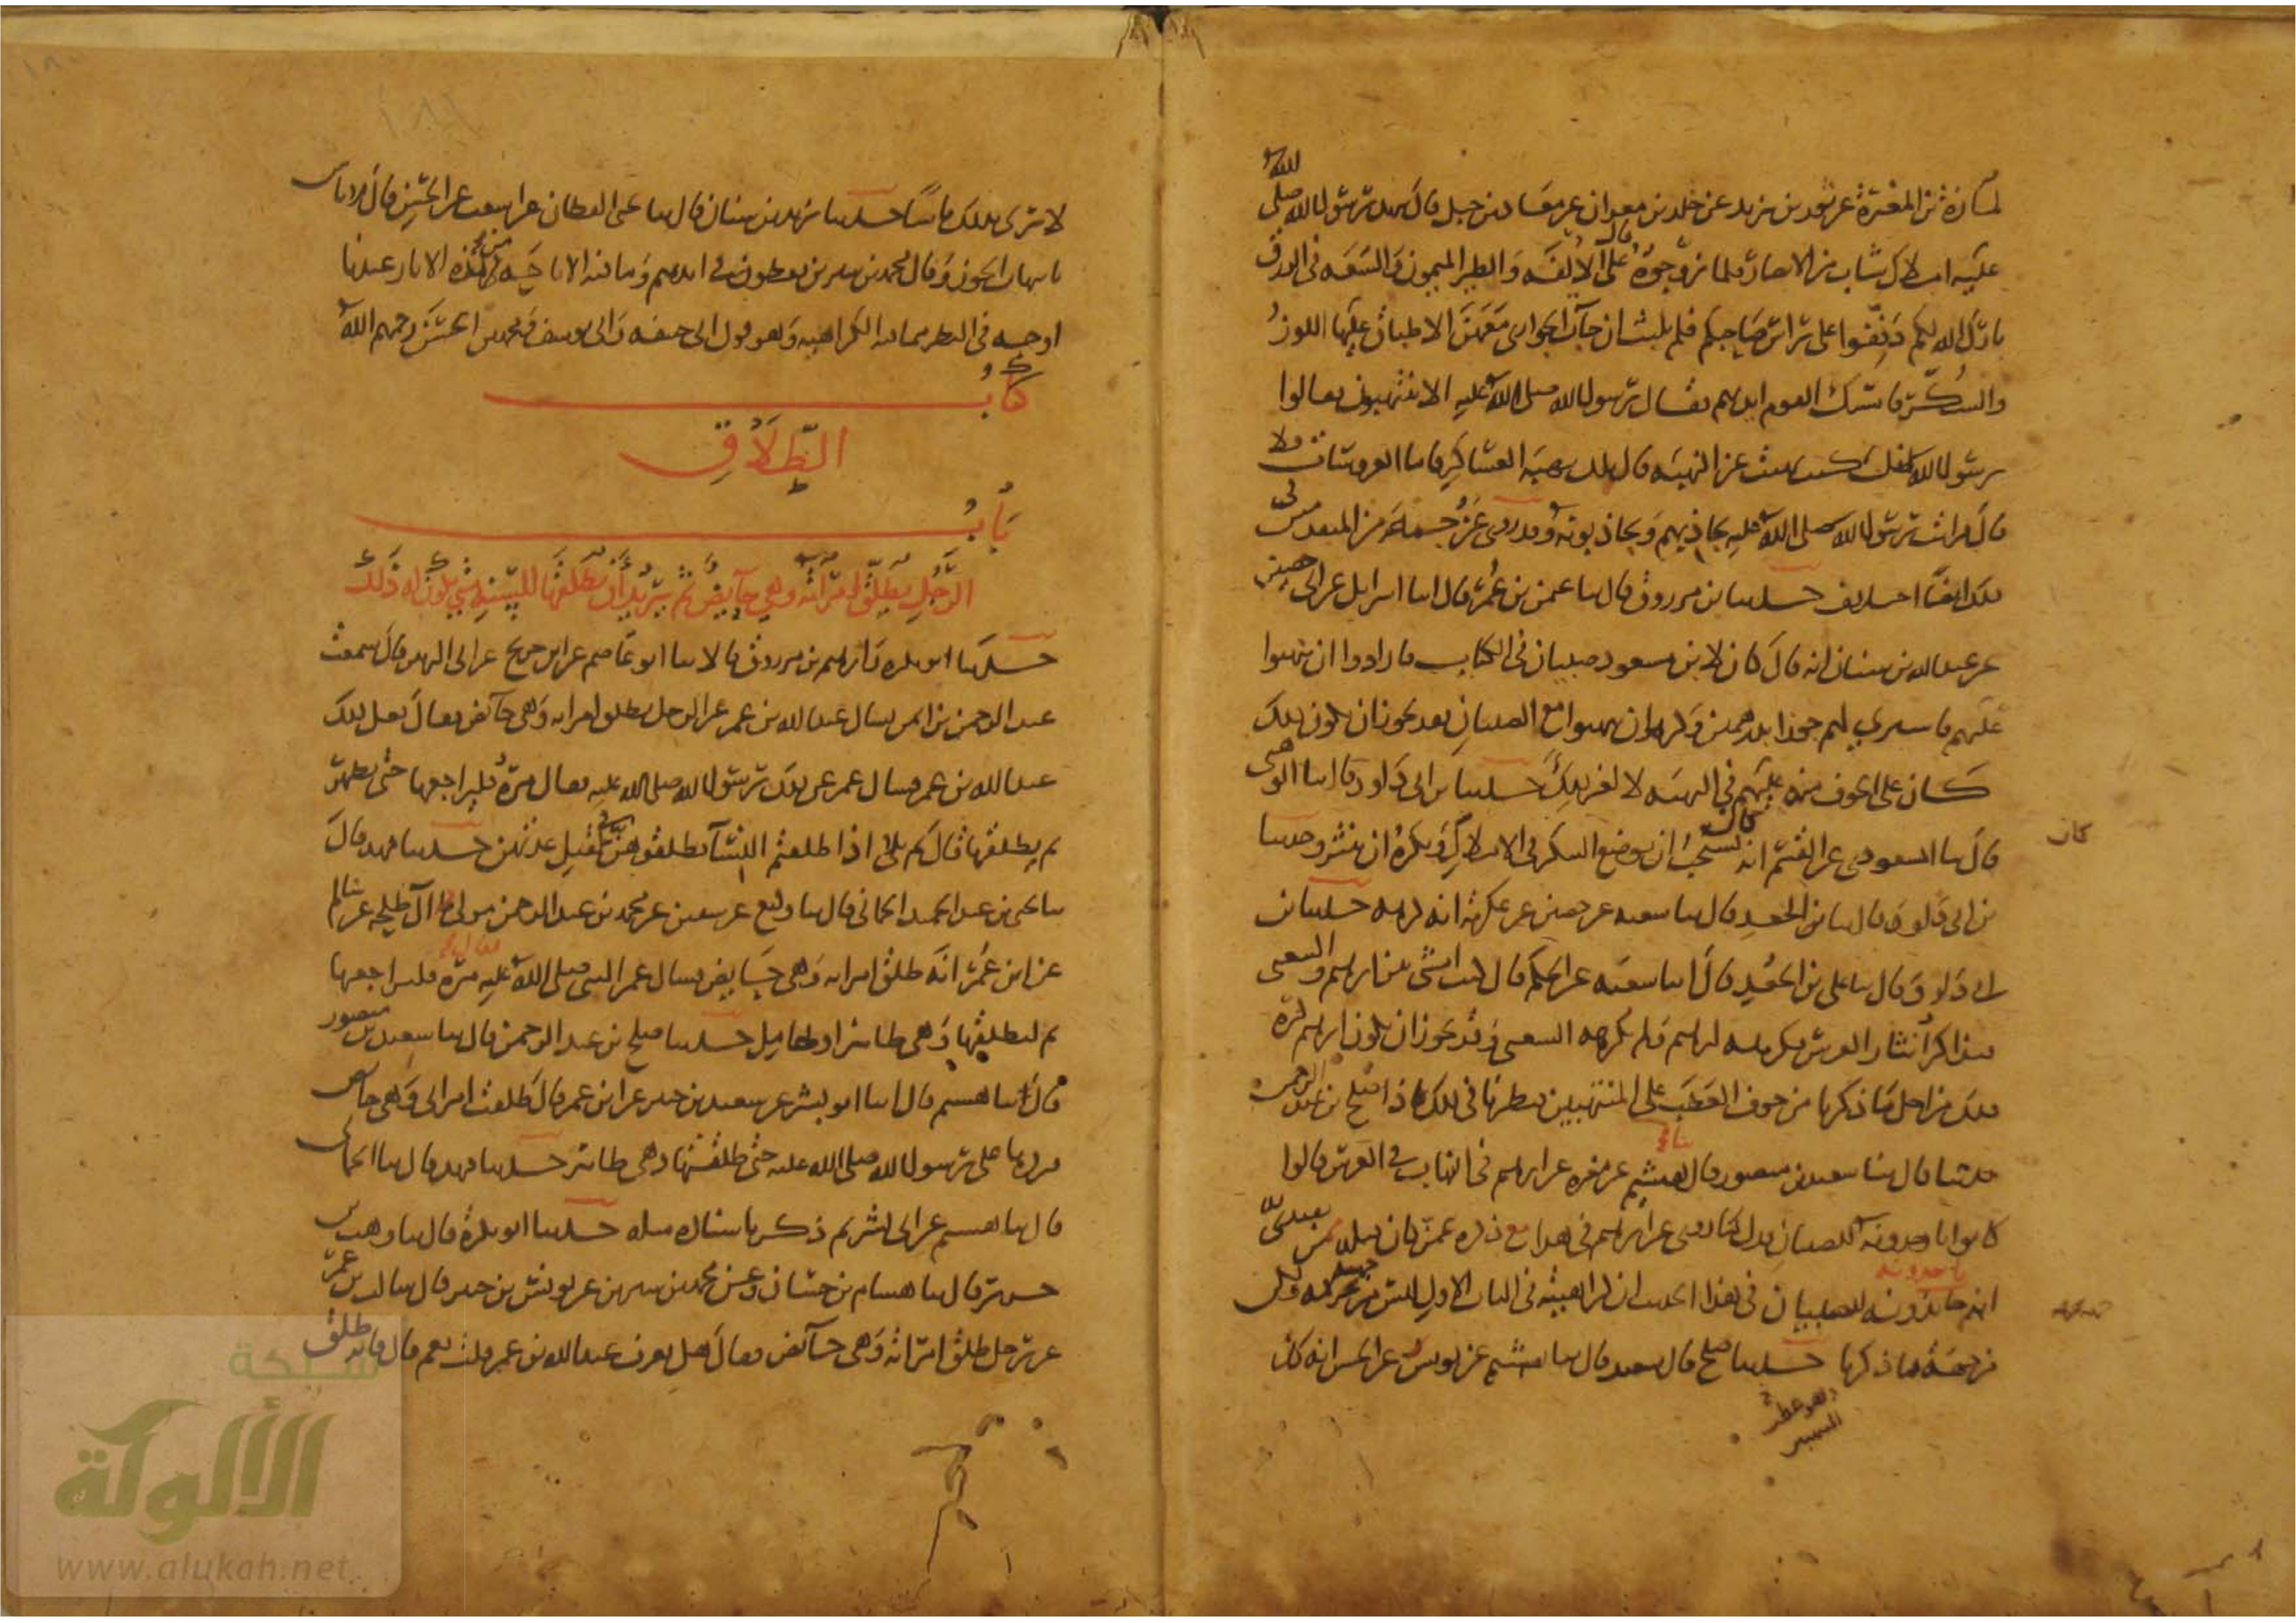 لمازة بن المغيرة عن ثور بن يزيد عن خلد بن معدان عن معاذ بن جبل قال شهد رسول الله صلى الله
عليه املاك شاب من الانصار فلما زوجوه قال على الالفة والطير الميمون والسعة في الرزق
بارك الله لكم دففوا على راس صاحبكم فلم يلبث ان جات الجواري معهن الاطباق عليها اللوز
والسكر فامسك القوم ايديهم فقال رسول الله صلى الله عليه الا تنتهبون فقالوا
يرسول الله انك كنت نهيت عن النهبة قال تلك نهبة العساكر فاما العرسات فلا
قال فرايت رسول الله صلى الله عليه يجاذبهم ويجاذبونه وقد روي عن جماعة من المتقدمين في
ذلك ايضا اختلاف حدثنا بن مرزوق قال ثنا عثمن بن عمر قال انا اسرائيل عن ابي حصين
عن عبد الله بن سنان انه قال كان لابن مسعود صبيان في الكتاب فارادوا ان ينتهبوا
عليهم فاشترى لهم جوزا بدرهمين وكره ان ينتهبوا مع الصبيان فقد يجوز ان يكون ذلك
كان على الخوف منه عليهم في النهبة لا لغير ذلك حدثنا بن ابي داود قال ثنا الوهبي
كان
قال ثنا المسعودي عن القسم انه كان يستحب ان يوضع السكر في الاملاك ويكره ان ينثر وحدثنا
بن ابي داود قال ثنا بن الجعد قال ثنا شعبه عن حصين عن عكرمة انه كرهه حدثنا بن
ابي داود قال ثنا علي بن الجعد قال انا شعبه عن الحكم قال كنت امشي بين ابرهيم والشعبي
فتذاكرا نثار العرس فكرهه ابرهيم ولم يكرهه الشعبي وقد يجوز ان يكون ابرهيم كره
ذلك من اجل ما ذكرنا من خوف العطب على المنتهبين فنظرنا في ذلك فاذا صلح بن عبد الرحمن
حدثنا قال ثنا سعيد بن منصور قال ثنا هشيم عن مغيره عن ابرهيم في النهاب في العرس قالوا
كانوا ياخذونه للصبيان فدل ما روى عن ابرهيم في هذا مع ذكره عمن كان قبله ممن يقتدى
انهم ياخذونه للصبيان في هذا الحديث ان كراهيته في الباب الاول ليس من جهة تحريمه ولكن
من جهة ما ذكرنا حدثنا صلح قال سعيد قال ثنا هشيم عن يونس عن الحسن انه كان
لا يرى بذلك باسا حدثنا يزيد بن سنان قال ثنا يحيى القطان عن اشعث عن الحسن قال لا باس
بانتهاب الجوز وقال محمد بن سيرين يعطون في ايديهم وما فيه الاباحة من هذه الاثار عندنا
اوجه في النظر مما فيه الكراهية وهو قول ابي حنيفه وابي يوسف ومحمد بن الحسن رحمهم الله
كتاب
الطلاق
باب
الرجل يطلق امراته وهي حايض ثم يريد ان يطلقها للسنة متى يكون له ذلك
حدثنا ابو بكره وابرهيم بن مرزوق قالا ثنا ابو عاصم عن ابن جريج عن ابي الزبير قال سمعت
عبد الرحمن بن ايمن يسال عبد الله بن عمر عن الرجل يطلق امراته وهي حائض فقال فعل ذلك
عبد الله بن عمر فسال عمر عن ذلك رسول الله صلى الله عليه فقال مره فليراجعها حتى تطهر
ثم يطلقها قال ثم تلا اذا طلقتم النسآ فطلقوهن في قبل عدتهن حدثنا فهد قال
ثنا يحيى بن عبد الحميد الحماني قال ثنا وكيع عن سفين عن محمد بن عبد الرحمن مولى آل طلحه عن سالم
عن ابن عمر انه طلق امراته وهي حايض فسال عمر النبي صلى الله عليه فقال مره فليراجعها
ثم ليطلقها وهي طاهر او حامل حدثنا صلح بن عبد الرحمن قال ثنا سعيد بن منصور
قال ثنا هشيم قال انا ابو بشر عن سعيد بن جبير عن ابن عمر قال طلقت امراتي وهي حايض
فردها على رسول الله صلى الله عليه حتى طلقتها وهي طاهر حدثنا فهد قال ثنا الحماني
قال ثنا هشيم عن ابي بشر ثم ذكر باسناده مثله حدثنا ابو بكرة قال ثنا وهب بن
جرير قال ثنا هشام بن حسان وعن محمد بن سيرين عن يونس بن جبير قال سالت بن عمر
عن رجل طلق امراته وهي حائض فقال هل تعرف عبد الله بن عمر قلت نعم قال فانه طلق
شبكة
الألوكة
www.alukah.net